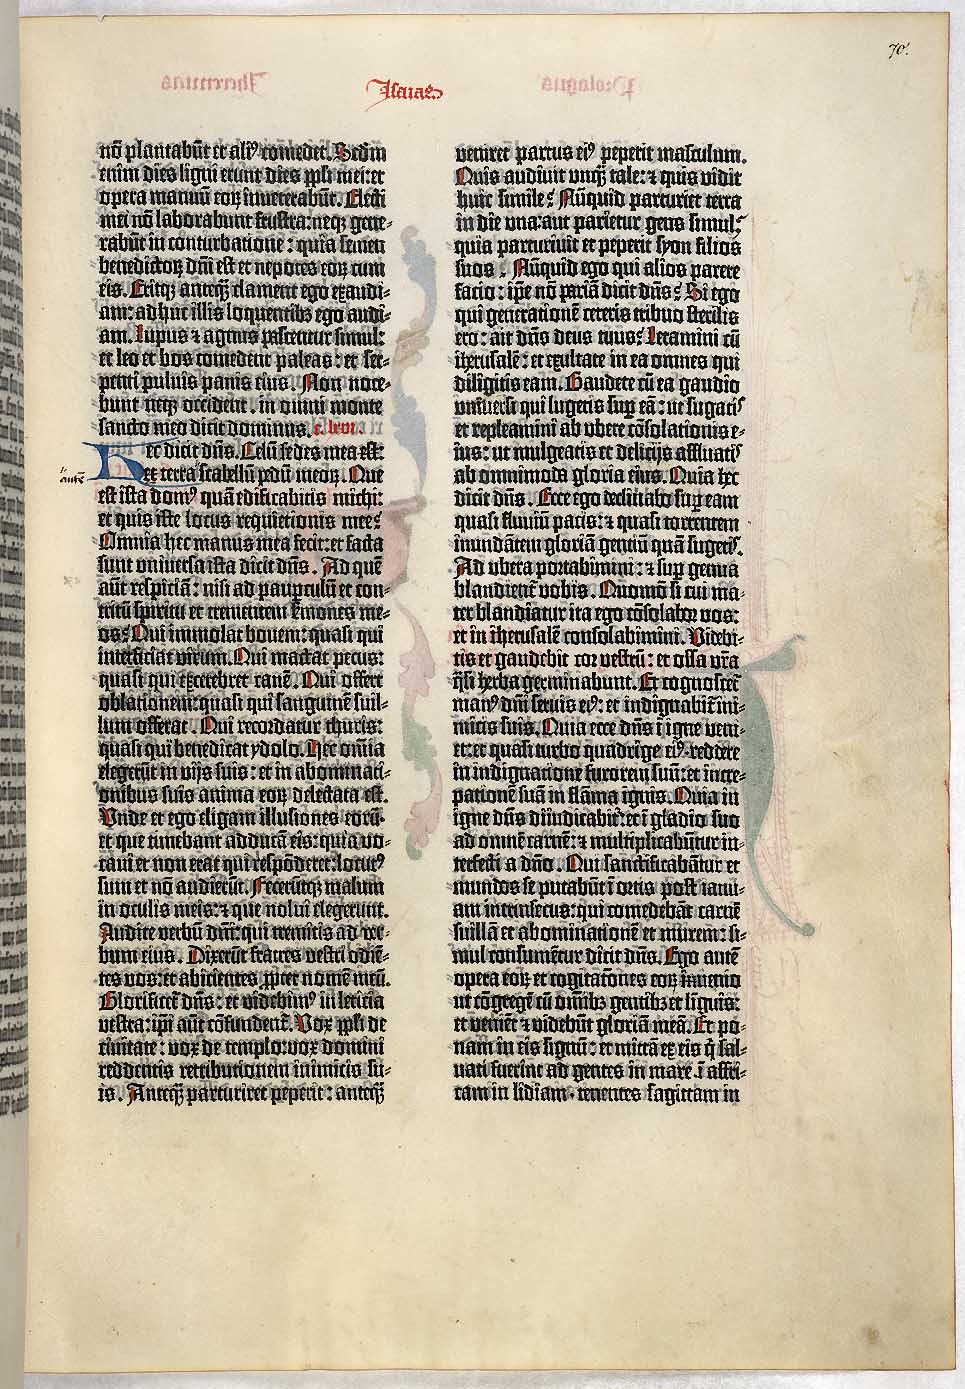 70.
Isaias
nō plantabūt et aliꝰ comedet. Scdm
enim dies ligni erunt dies ppli mei: et
opera manuū eoꝝ inveterabūt. Electi
mei nō laborabunt frustra: neqꝫ gene-
rabūt in conturbatione: quia semen
benedictoꝝ dñi est et nepotes eoꝝ cum
eis. Eritqꝫ anteqꝫ clament ego exaudi-
am: adhuc illis loquentibꝫ ego audi-
am. Lupus ⁊ agnus pascentur simul:
et leo et bos comedent paleas: et ser-
penti pulvis panis eius. Non noce-
bunt neqꝫ occident in omni monte
sancto meo dicit dominus. c. lxvi.
Hec dicit dñs. Celū sedes mea est:
terra scabellū pedū meoꝝ. Que
autē
est ista domꝰ quā edificabitis michi:
et quis iste locus requietionis mee?
Omnia hec manus mea fecit: et facta
sunt universa ista dicit dñs. Ad quē
aūt respiciā: nisi ad pauperculū et con-
tritū spiritu et trementem sermones me-
os? Qui immolat bovem: quasi qui
interficiat virum. Qui mactat pecus:
quasi qui excerebret canē. Qui offert
oblationem: quasi qui sanguinē suil-
lum offerat. Qui recordatur thuris:
quasi qui benedicat ydolo. Hec omīa
elegerūt in vijs suis: et in abominati-
onibus suis anima eoꝝ delectata est.
Unde et ego eligam illusiones eorū:
et que timebant adducā eis: quia vo-
cavi et non erat qui respōderet: locutꝰ
sum et nō audierūt. Feceruntqꝫ malum
in oculis meis: ⁊ que nolui elegerunt.
Audite verbū dñi: qui tremitis ad ver-
bum eius. Dixerūt fratres vestri odiē-
tes vos: et abicientes ꝓpter nomē meū.
Glorificet̄ dñs: et videbimꝰ in leticia
vestra: ipi aūt cōfundent̄. Vox ppli de
civitate: vox de templo: vox domini
reddentis retributionem inimicis su-
is. Anteqꝫ parturiret peperit: anteqꝫ
veniret partus eiꝰ peperit masculum.
Quis audivit unqꝫ tale: ⁊ quis vidit
huic simile? Nūquid parturiet terra
in die una: aut parietur gens simul?
quia parturivit et peperit syon filios
suos? Nūquid ego qui alios parere
facio: ipe nō pariā dicit dñs? Si ego
qui generationē ceteris tribuo sterilis
ero: ait dñs deus tuus? Letamini cū
iherusalē: et exultate in ea omnes qui
diligitis eam. Gaudete cū ea gaudio
universi qui lugetis sup eā: ut sugatis
et repleamini ab ubere cōsolationis e-
ius: ut mulgeatis et delicijs affluatis
ab omnimoda gloria eius. Quia hec
dicit dñs. Ecce ego declinabo sup eam
quasi fluviū pacis: ⁊ quasi torrentem
inundātem gloriā gentiū quā sugetis.
Ad ubera portabimini: ⁊ sup genua
blandient̄ vobis. Quomō si cui ma-
ter blandiatur ita ego cōsolabor vos:
et in iherusalē consolabimini. Videbi-
tis et gaudebit cor vestrū: et ossa vr̄a
qͣsi herba germinabunt. Et cognoscet̄
manꝰ dñi servis eiꝰ: et indignabit̄ ini-
micis suis. Quia ecce dñs ī igne veni-
et: et quasi turbo quadrige eiꝰ: reddere
in indignatione furorem suū: et incre-
pationē suā in flāma ignis. Quia in
igne dñs diiudicabit̄: et ī gladio suo
ad omnē carnē: ⁊ multiplicabūtur in-
terfecti a dño. Qui sanctificabātur et
mundos se putabūt ī ortis post ianu-
am intrinsecus: qui comedebāt carnē
suillā et abominationē et murem: si-
mul consumētur dicit dñs. Ego autē
opera eoꝝ et cogitatōnes eoꝝ invenio
ut cōgregē cū omībꝫ gentibꝫ et liguis:
et venient ⁊ videbūt gloriā meā. Et po-
nam in eis signū: et mittā ex eis qͥ sal-
vati fuerint ad gentes in mare: ī affri-
cam in lidiam: tenentes sagittam in